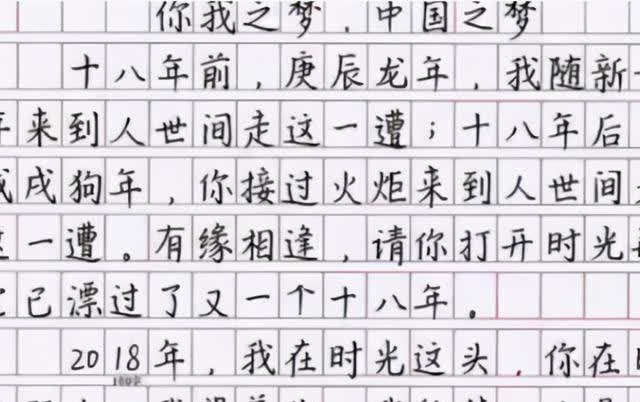 你我之梦，中国之梦
十八年前，庚辰龙年，我随新
来到人世间走这一遭；十八年后
戊戌狗年，你接过火炬来到人世间
一遭。有缘相逢，请你打开时光
已漂过了又一个十八年。
2018年，我在时光这头，你在
100字